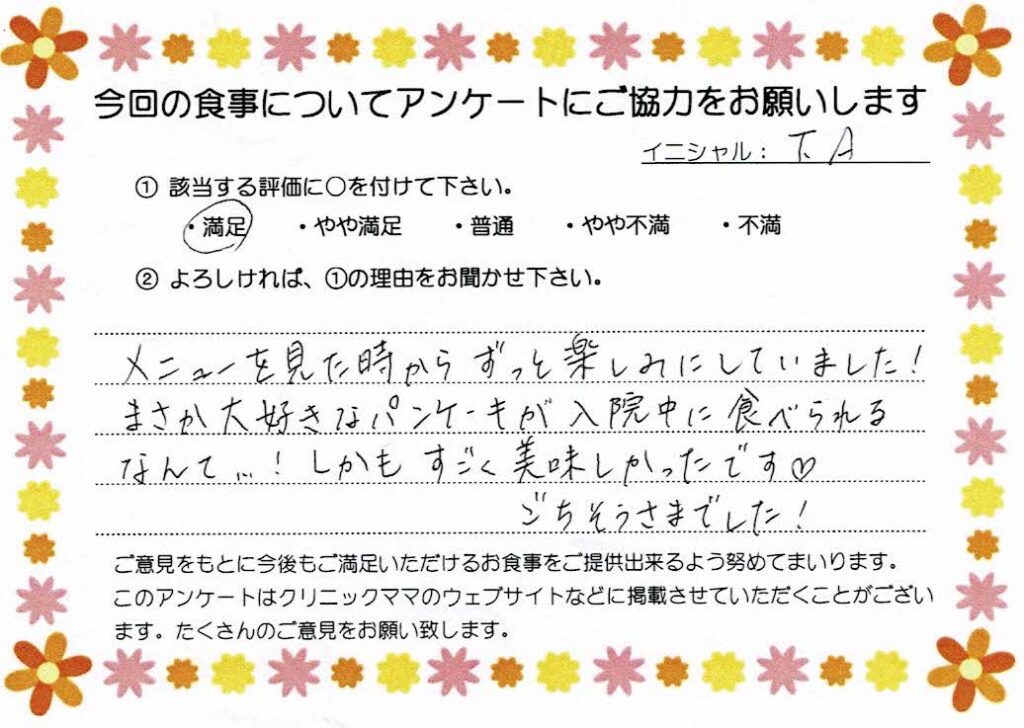 今回の食事についてアンケートにご協力をお願いします
イニシャル： T. A
① 該当する評価に○を付けて下さい。
・満足 ・やや満足 ・普通 ・やや不満 ・不満
② よろしければ、①の理由をお聞かせ下さい。
メニューを見た時からずっと楽しみにしていました！
まさか大好きなパンケーキが入院中に食べられる
なんて…！しかもすごく美味しかったです♡
ごちそうさまでした！
ご意見をもとに今後もご満足いただけるお食事をご提供出来るよう努めてまいります。
このアンケートはクリニックママのウェブサイトなどに掲載させていただくことがござい
ます。たくさんのご意見をお願い致します。